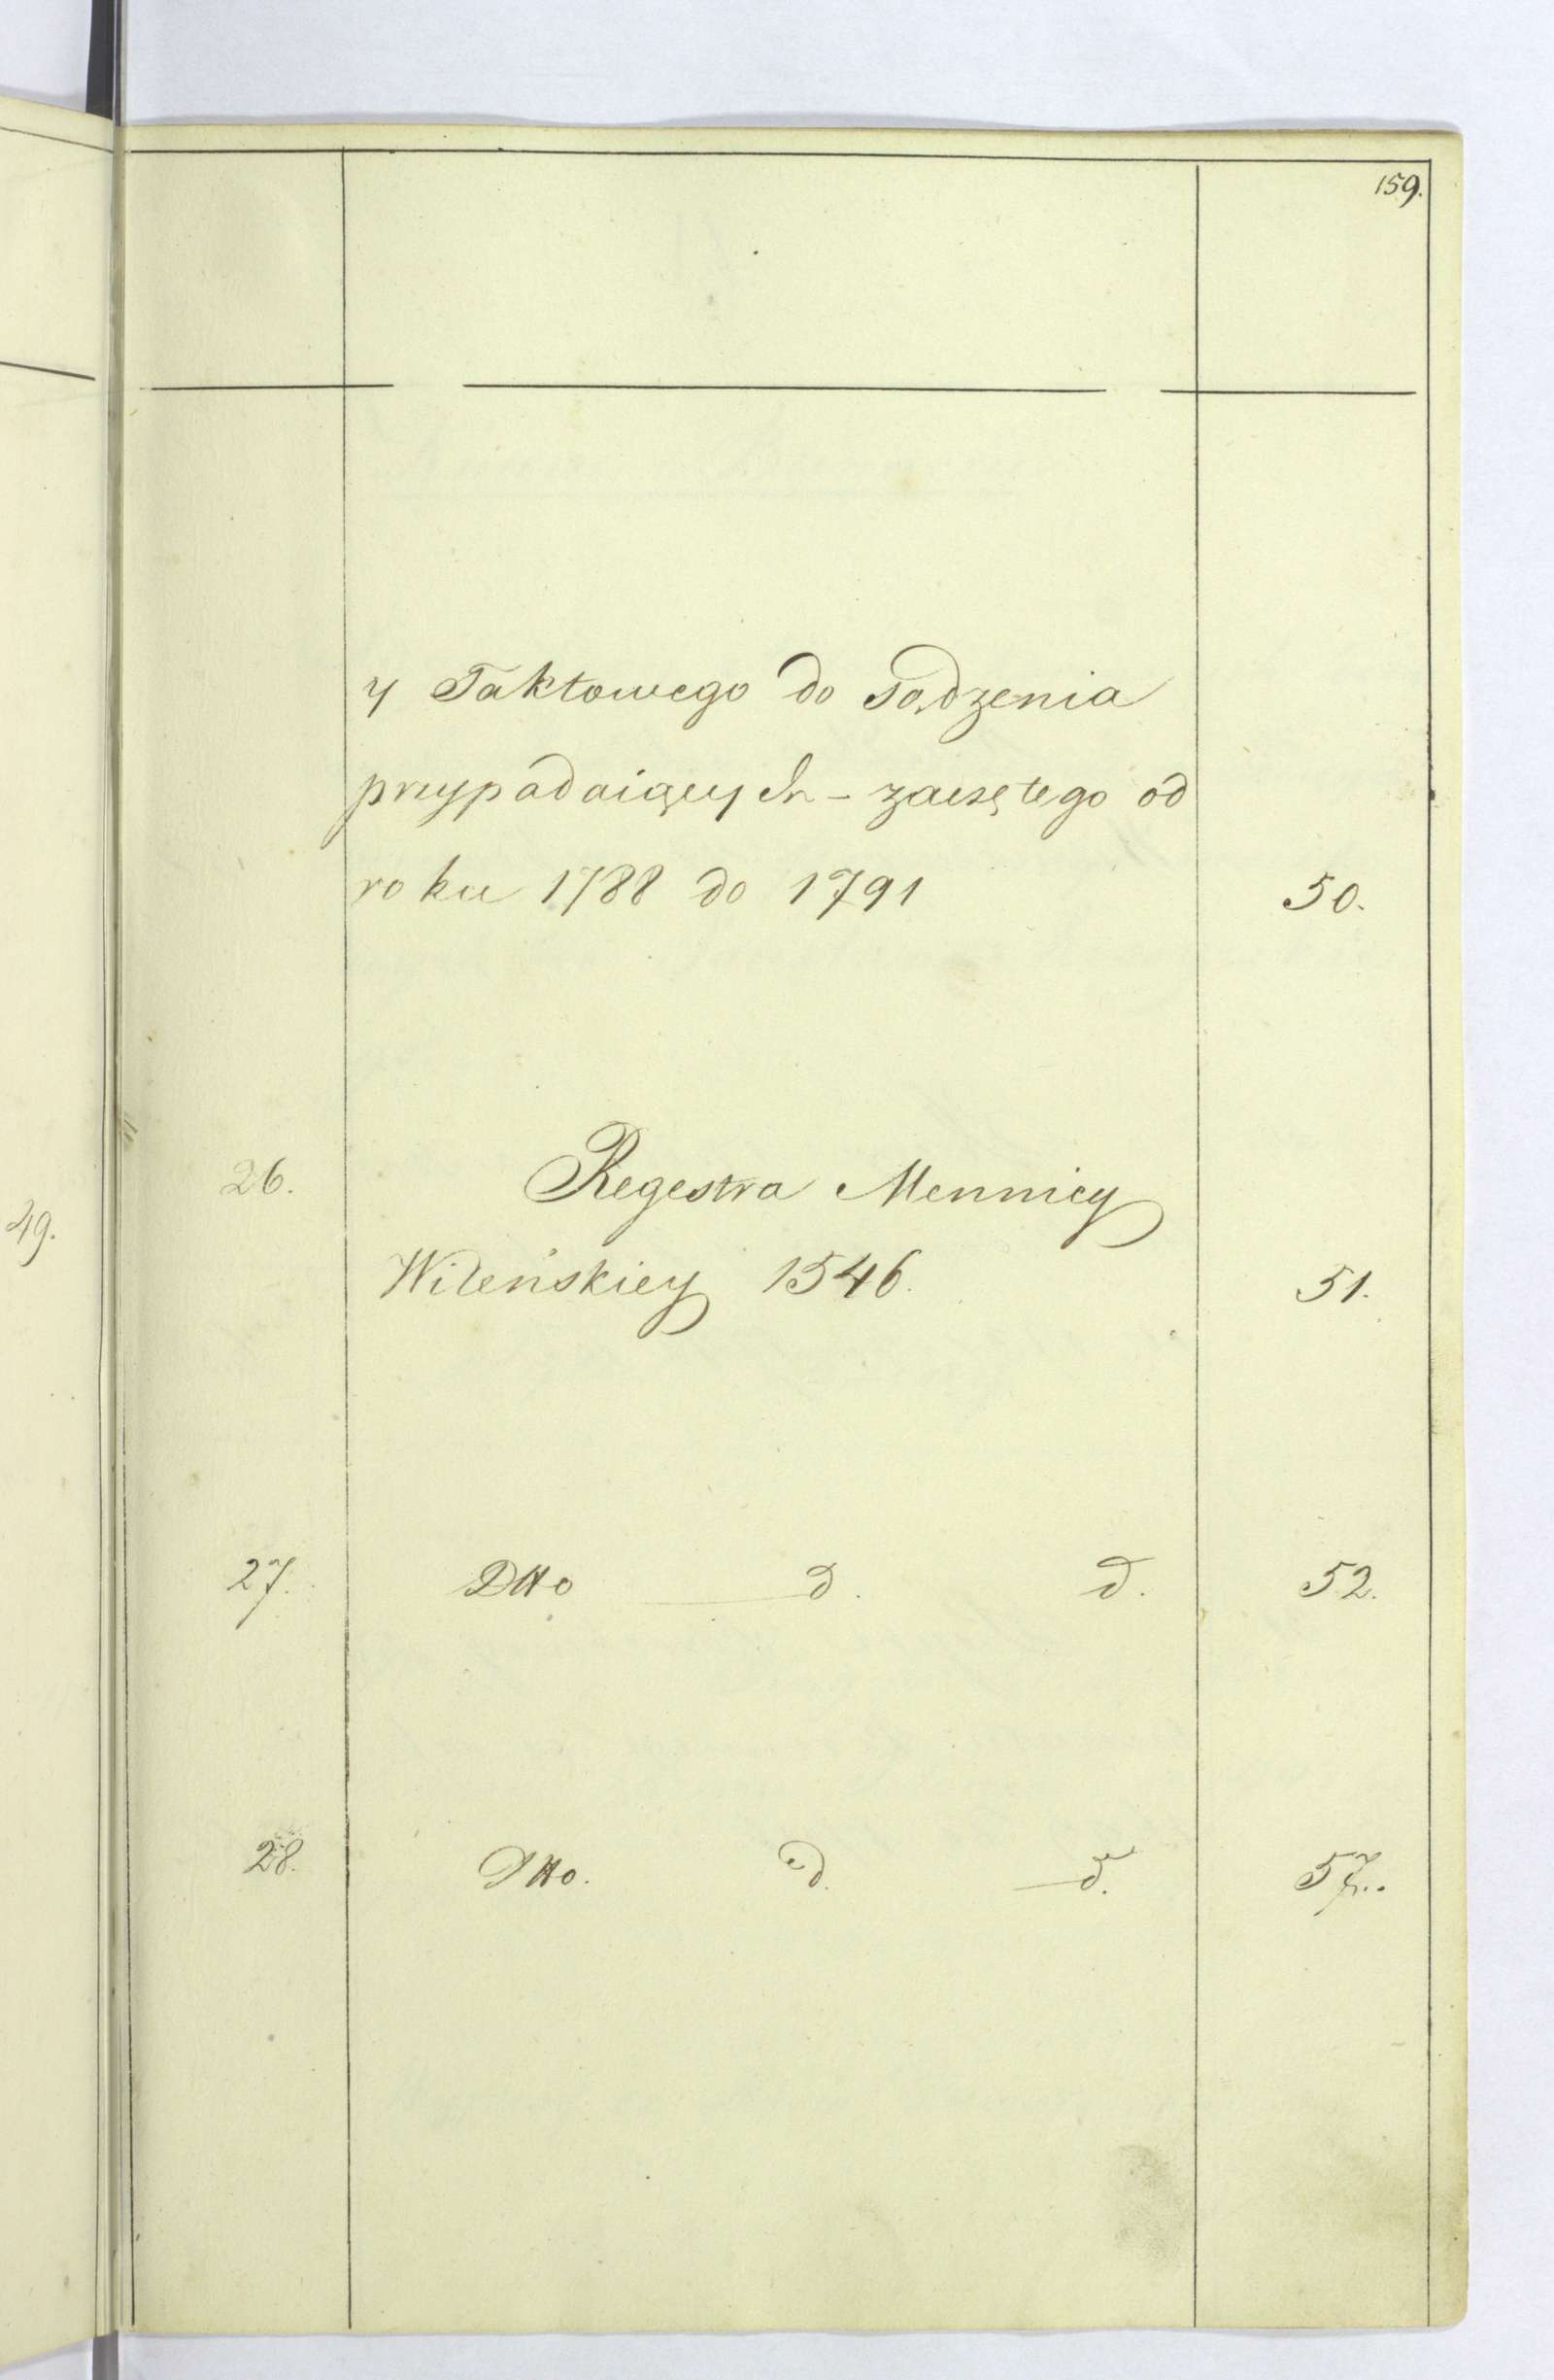 159.
y Taktowego do sądzenia
przypadaiących - zaczętego od
roku 1788 do 1791 50.
49.
26. Regestra Mennicy
Wileńskiey 1546. 51.
27. Dtto d. d. 52.
28. Dtto. d. d.